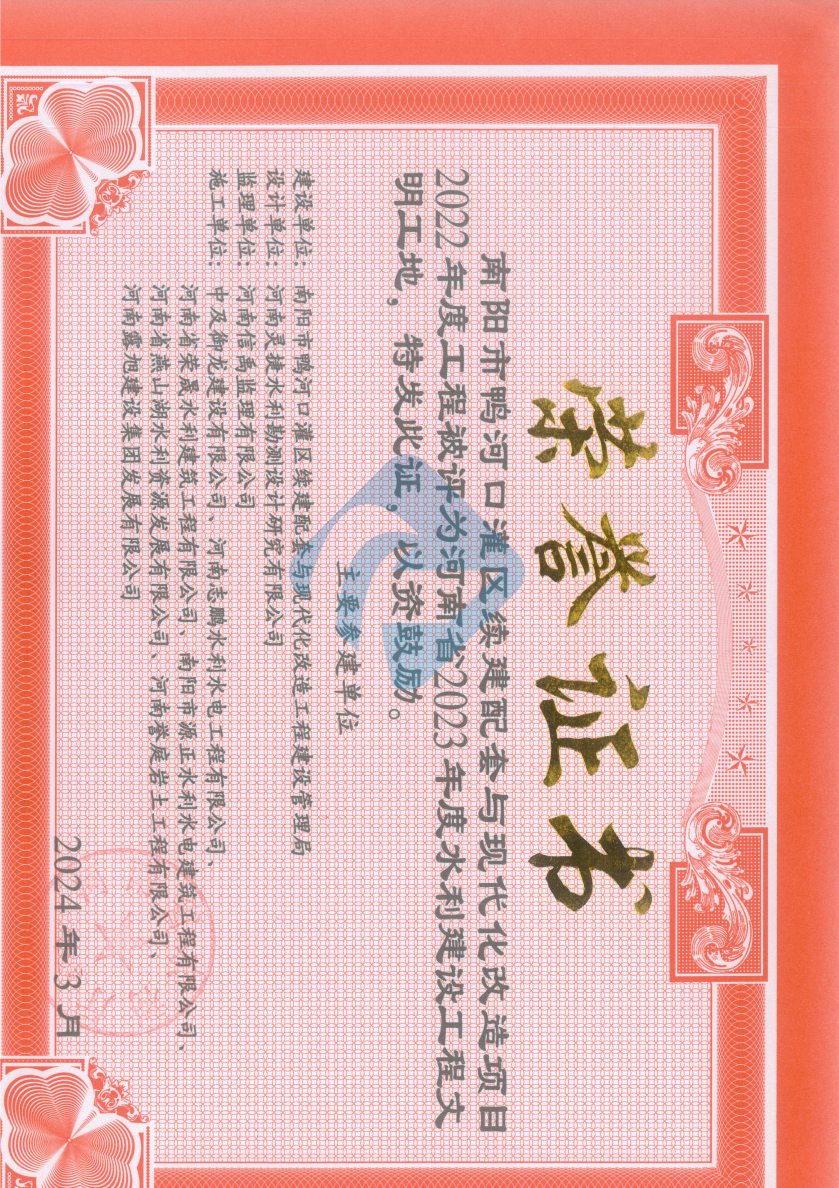 荣誉证书
南阳市鸭河口灌区续建配套与现代化改造项目
2022年度工程被评为河南省2023年度水利建设工程文
明工地，特发此证，以资鼓励。
主要参建单位
建设单位：南阳市鸭河口灌区续建配套与现代化改造工程建设管理局
设计单位：河南灵捷水利勘测设计研究有限公司
监理单位：河南信禹监理有限公司
施工单位：中及御龙建设有限公司、河南志鹏水利水电工程有限公司、
河南省荣晟水利建筑工程有限公司、南阳市源正水利水电建筑工程有限公司、
河南省燕山湖水利资源发展有限公司、河南誉庭岩土工程有限公司、
河南露旭建设集团发展有限公司
2024年3月